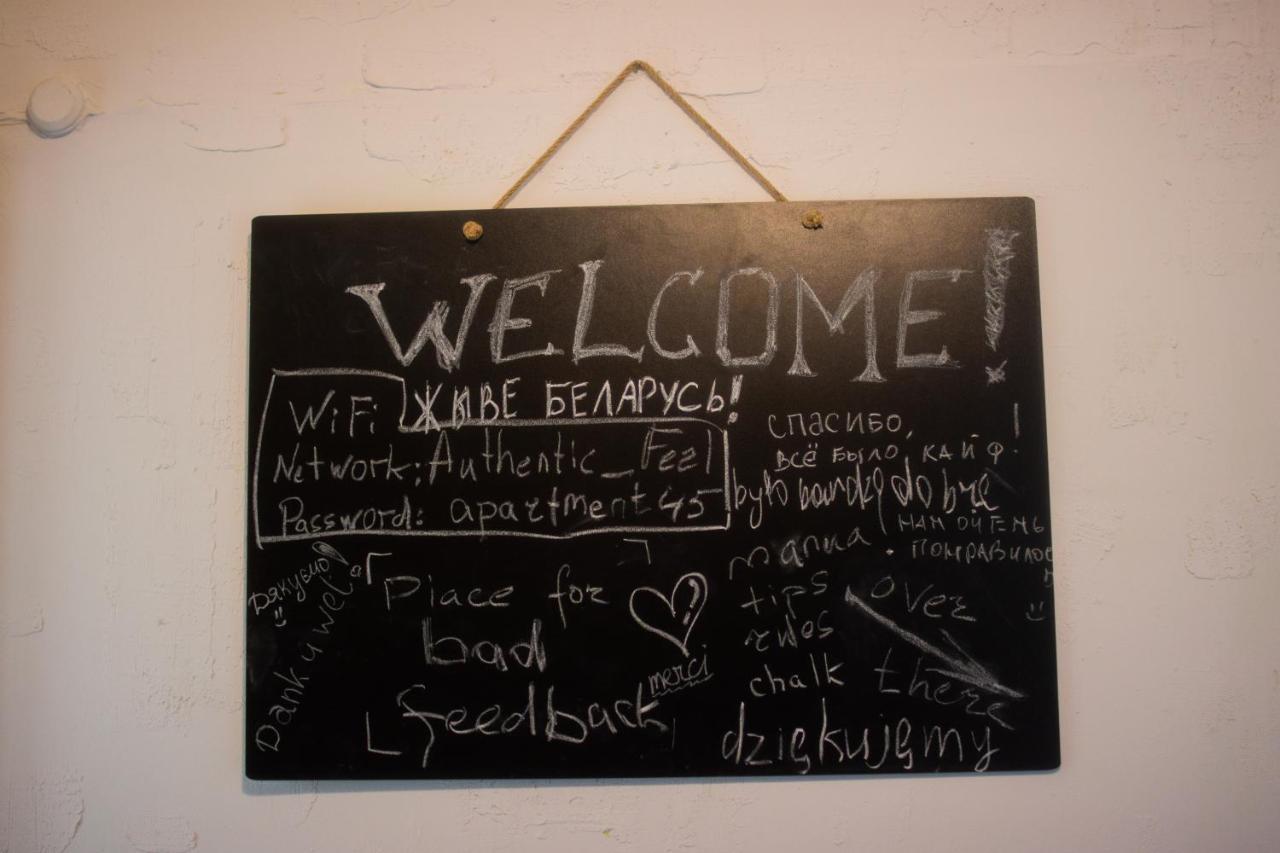 WELCOME!
WiFi
ЖЫВЕ БЕЛАРУСЬ!
Network: Authentic_Feel
Password: apartment 45
СПАСИБО,
ВСЁ БЫЛО КАЙФ!
było bardzo dobrze
НАМ ОЧЕНЬ
ПОНРАВИЛОСЬ
Дякуємо
Dank u wel!
Place for
bad
feedback
merci
manua
tips
rules
chalk
over
there
dziękujęmy